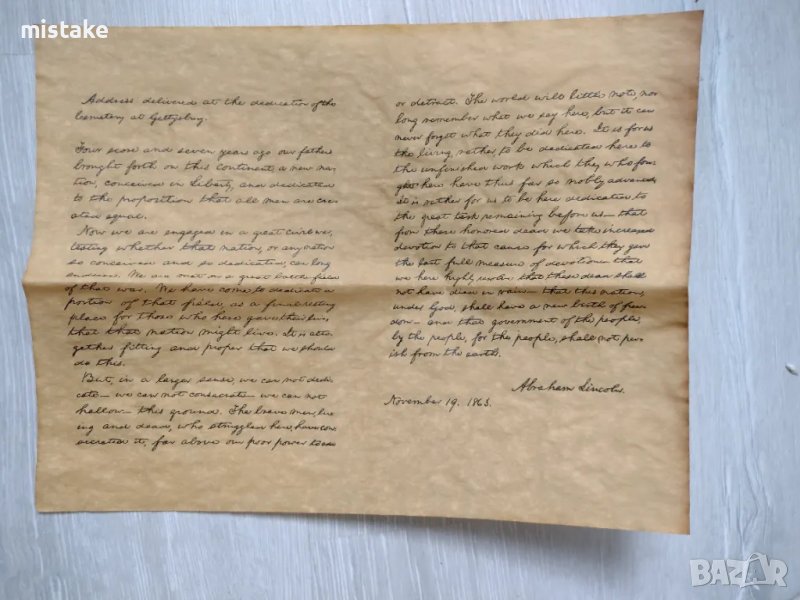 mistake
Address delivered at the dedication of the
Cemetery at Gettysburg.
Four score and seven years ago our fathers
brought forth on this continent, a new na-
tion, conceived in Liberty, and dedicated
to the proposition that all men are cre-
ated equal.
Now we are engaged in a great civil war,
testing whether that nation, or any nation
so conceived and so dedicated, can long
endure. We are met on a great battle field
of that war. We have come to dedicate a
portion of that field, as a final resting
place for those who here gave their lives
that that nation might live. It is alto-
gether fitting and proper that we should
do this.
But, in a larger sense, we can not dedi-
cate— we can not consecrate— we can not
hallow— this ground. The brave men, liv-
ing and dead, who struggled here, have con-
secrated it, far above our poor power to add
or detract. The world will little note, nor
long remember what we say here, but it can
never forget what they did here. It is for us
the living, rather, to be dedicated here to
the unfinished work which they who fou-
ght here have thus far so nobly advanced.
It is rather for us to be here dedicated to
the great task remaining before us— that
from these honored dead we take increased
devotion to that cause for which they gave
the last full measure of devotion— that
we here highly resolve that these dead shall
not have died in vain— that this nation,
under God, shall have a new birth of free-
dom— and that government of the people,
by the people, for the people, shall not per-
ish from the earth.
Abraham Lincoln.
November 19. 1863.
BAZAR